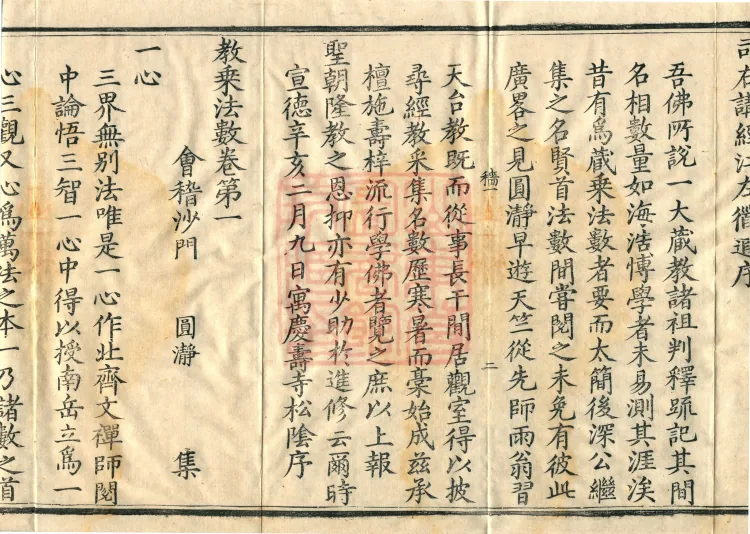 司右講經沙左衢道序
吾佛所說一大藏教諸祖判釋䟽記其間
名相數量如海浩愽學者未易測其涯涘
昔有爲藏乗法數者要而太簡後深公繼
集之名賢首法數間甞閱之未免有彼此
廣畧之見圓瀞早遊天竺從先師雨翁習
穡一 二
天台教既而從事長干閒居觀室得以披
尋經教采集名數歷寒暑而藁始成兹承
檀施壽梓流行學佛者覽之庶以上報
聖朝隆教之恩抑亦有少助於進修云爾時
宣德辛亥二月九日寓慶壽寺松陰序
教乗法數卷第一
會稽沙門 圓瀞 集
一心
三界無別法唯是一心作北齊文禪師閱
中論悟三智一心中得以授南岳立爲一
心三觀又心爲萬法之本一乃諸數之首